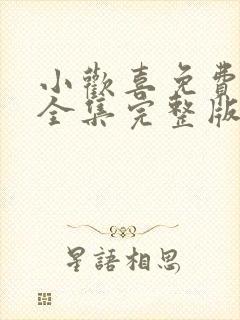 小歡喜免費
全集完整版
星語相思